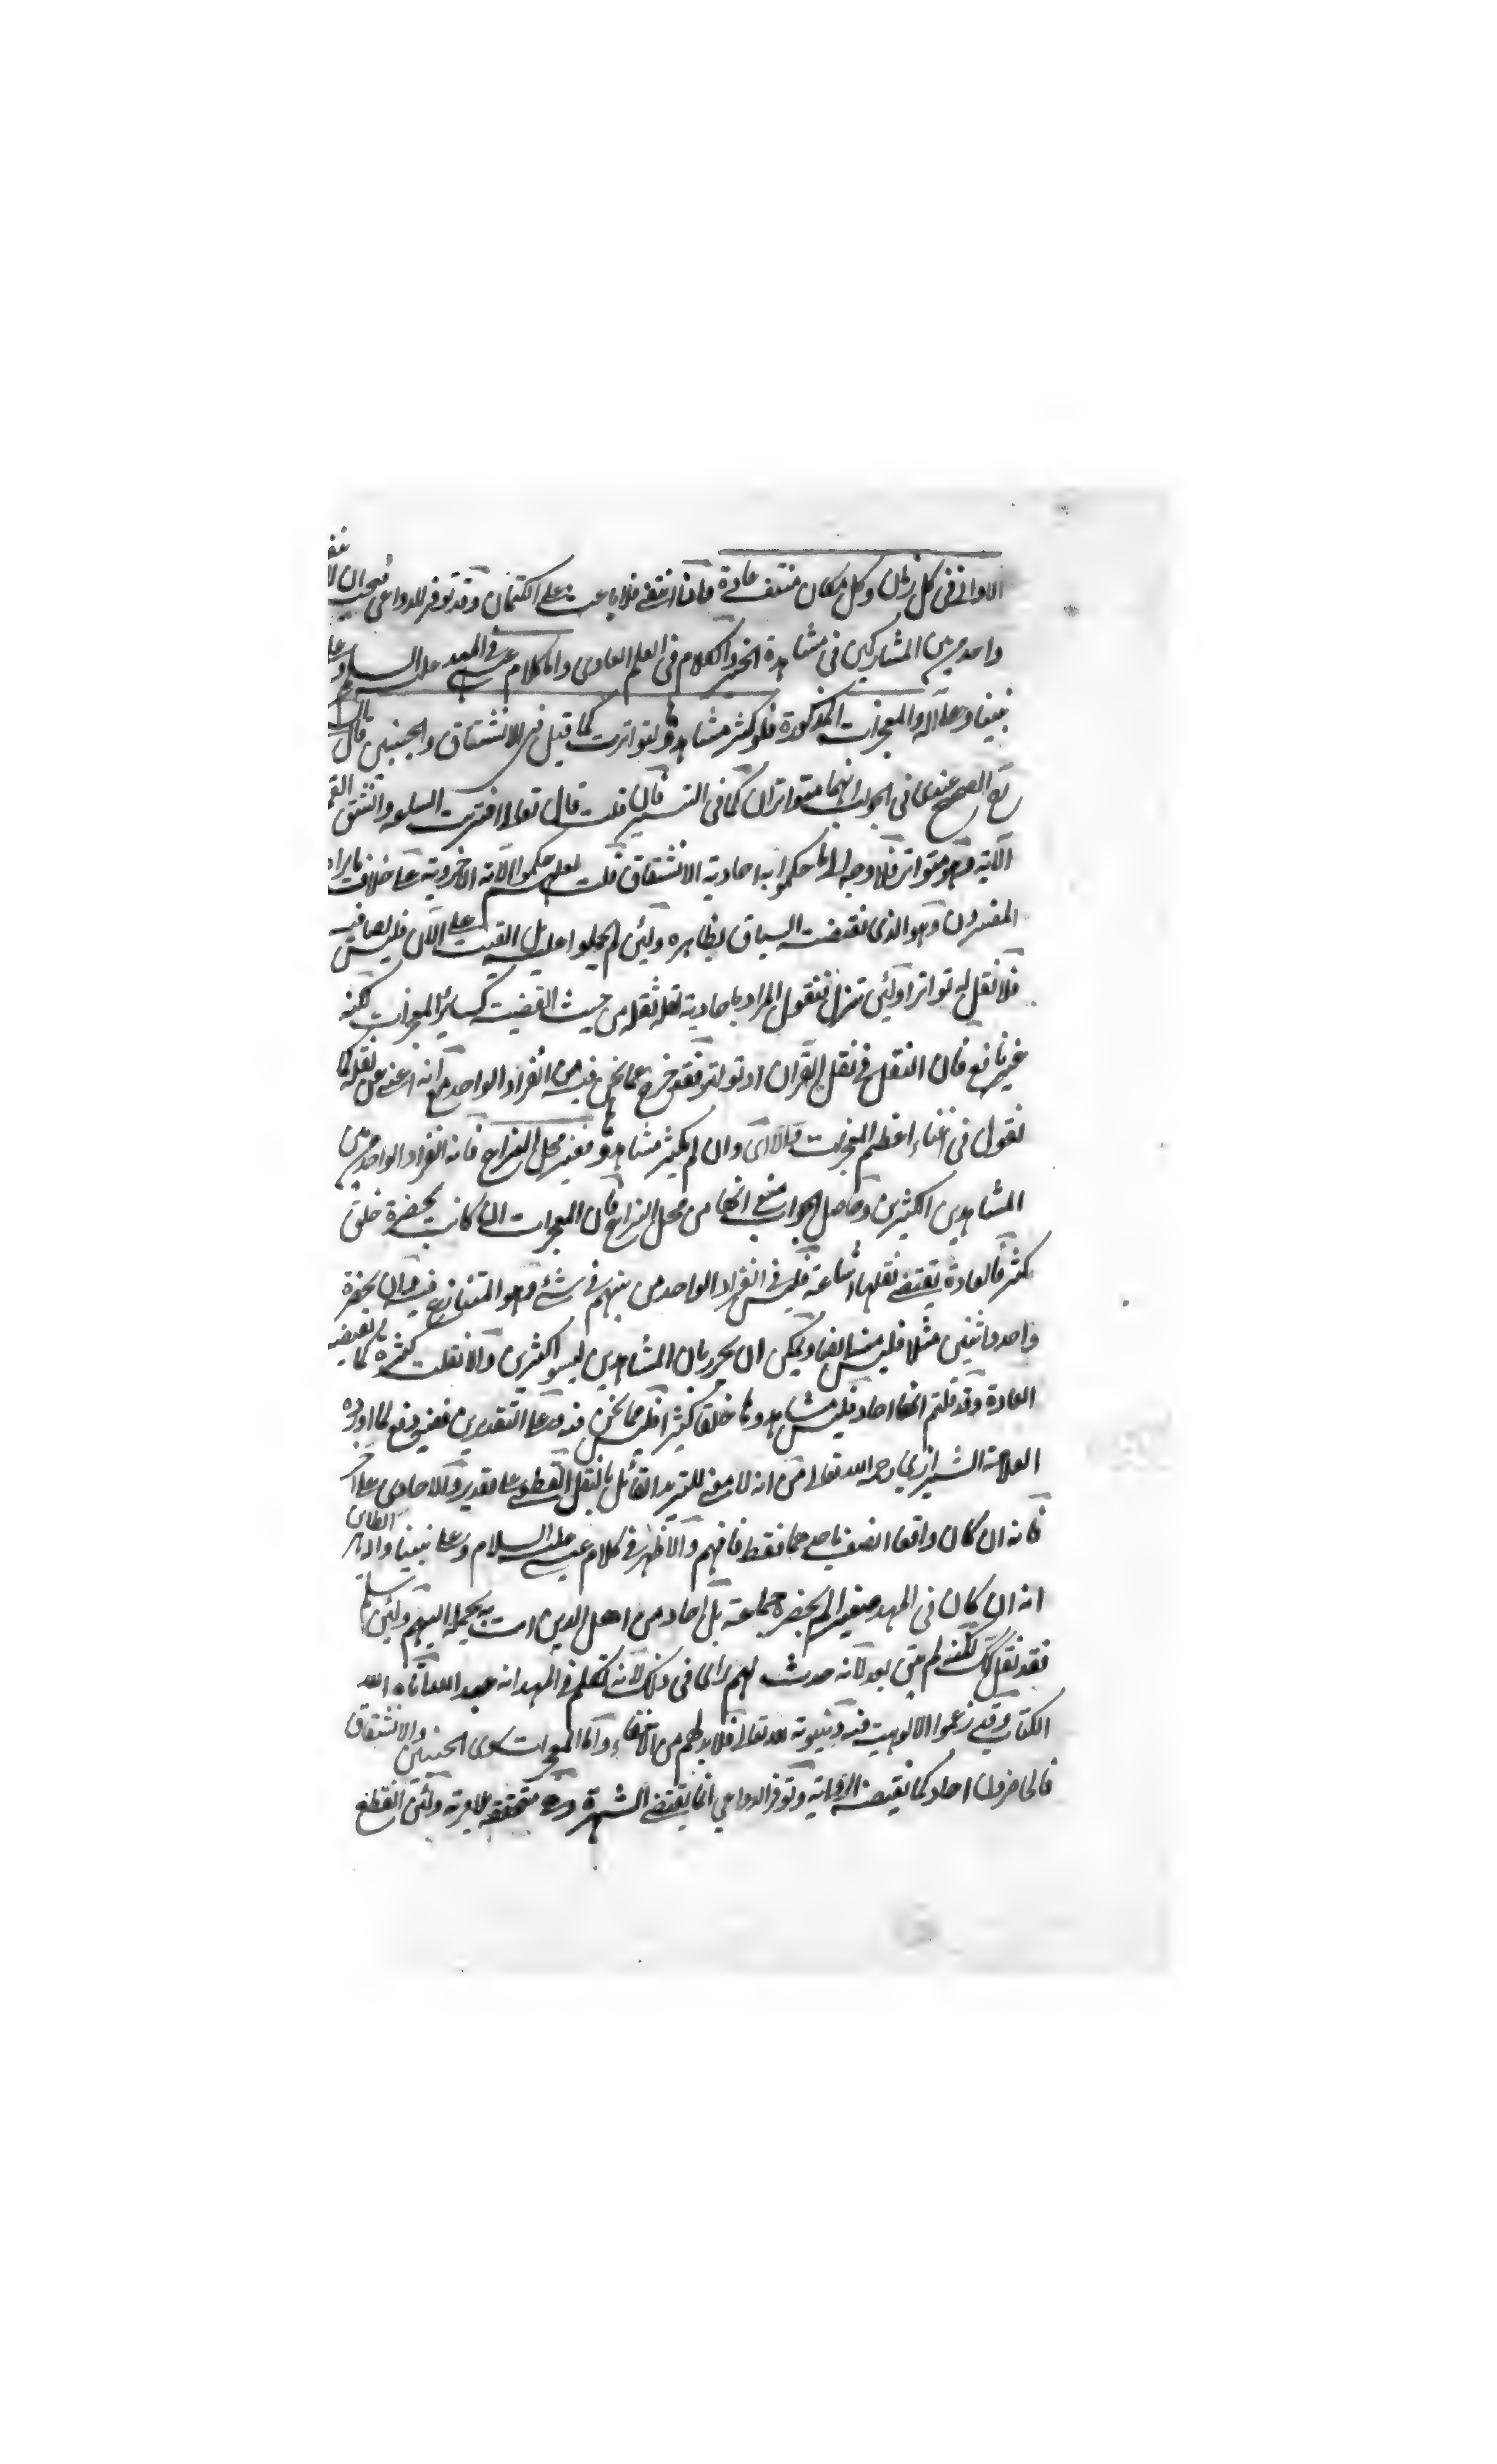 الاواني في كل زمان وكل مكان منتف عادة فاذا انتفى فلا باعث على الكتمان وقد توفر الدواعي فيجب ان
واحد من المشاركين في مشاهدة الخبر الكلام في العلم العادي واما كلام عيسى في المهد عليه السلام وعلى
نبينا وعلى آله والمعجزات المذكورة فلو كثر مشاهدوها لتواترت كما قيل في الانشقاق والحنين قال
الصحيح عندي في الجواب انهما متواتران كما في التيسير فان قلت قال تعالى اقتربت الساعة وانشق القمر
الآية وهو متواتر فلا وجه لما حكموا به احادية الانشقاق قلت لعلهم حكموا الآية الاخروية على خلاف ما يراه
المفسرون وهو الذي يقتضيه السياق بظاهره ولئن لم يحملوا عليه بل القيت على الآن فليس نصا فيه
فلا نقل له تواترا ولئن تنزل فنقول المراد باحاديته نقله من حيث القضية كسائر المعجزات لكنه
غير نافع فان النقل في نقل القرآن اذ تواتر فقد خرج عما نحن فيه من انفراد الواحد مع انه اغنى عن نقله كما
نقول في اغناء اعظم المعجزات والا اي وان لم يكثر مشاهدوها فغير محل النزاع فانه انفراد الواحد من
المشاهدين الكثيرين وحاصل الجواب منع انها من محل النزاع فان المعجزات ان كانت بحضرة خلق
كثير فالعادة يقتضي نقلها اشاعة فليس في انفراد الواحد من بينهم في شئ وهو المتنازع فيه وان بحضرة
واحد واثنين مثلا فليس منه ايضا ويمكن ان يحرر بان المشاهدين ليسوا كثيرين والا نقلت كثرة كما يقتضيه
العادة وقد قلتم انها احاد فليس مشاهدوها خلقا كثيرا فليس مما نحن فيه وعلى التقديرين فغير دفع لما اورده
العلامة الشيرازي رحمه الله تعالى من انه لا معنى للترديد القائل بالنقل القطعي على تقدير والاحادي على آخر
فانه ان كان واقعا اتصف باحدهما فقط فافهم والاظهر في كلام عيسى عليه السلام وعلى نبينا وآله الطاهر
انه ان كان في المهد صغيرا لم بحضرة جماعة بل احاد من اهل الدين امت به يحمله اليهم ولئن سلم
فقد نقل لكنه لم يبق بعد لانه حدث لهم رأي في ذلك لانه تكلم في المهد انه عبد الله آتاه الله
الكتاب وقد زعموا الالوهية فيه وبنيوته لله تعالى فلا بد لهم من الاخفاء واما المعجزات سوى الحنين والانشقاق
فالحاضرون احاد كما يقتضيه الرواية وتوفر الدواعي انما يقتضي الشهرة وهي متحققة بلا مرية ولئن القطع